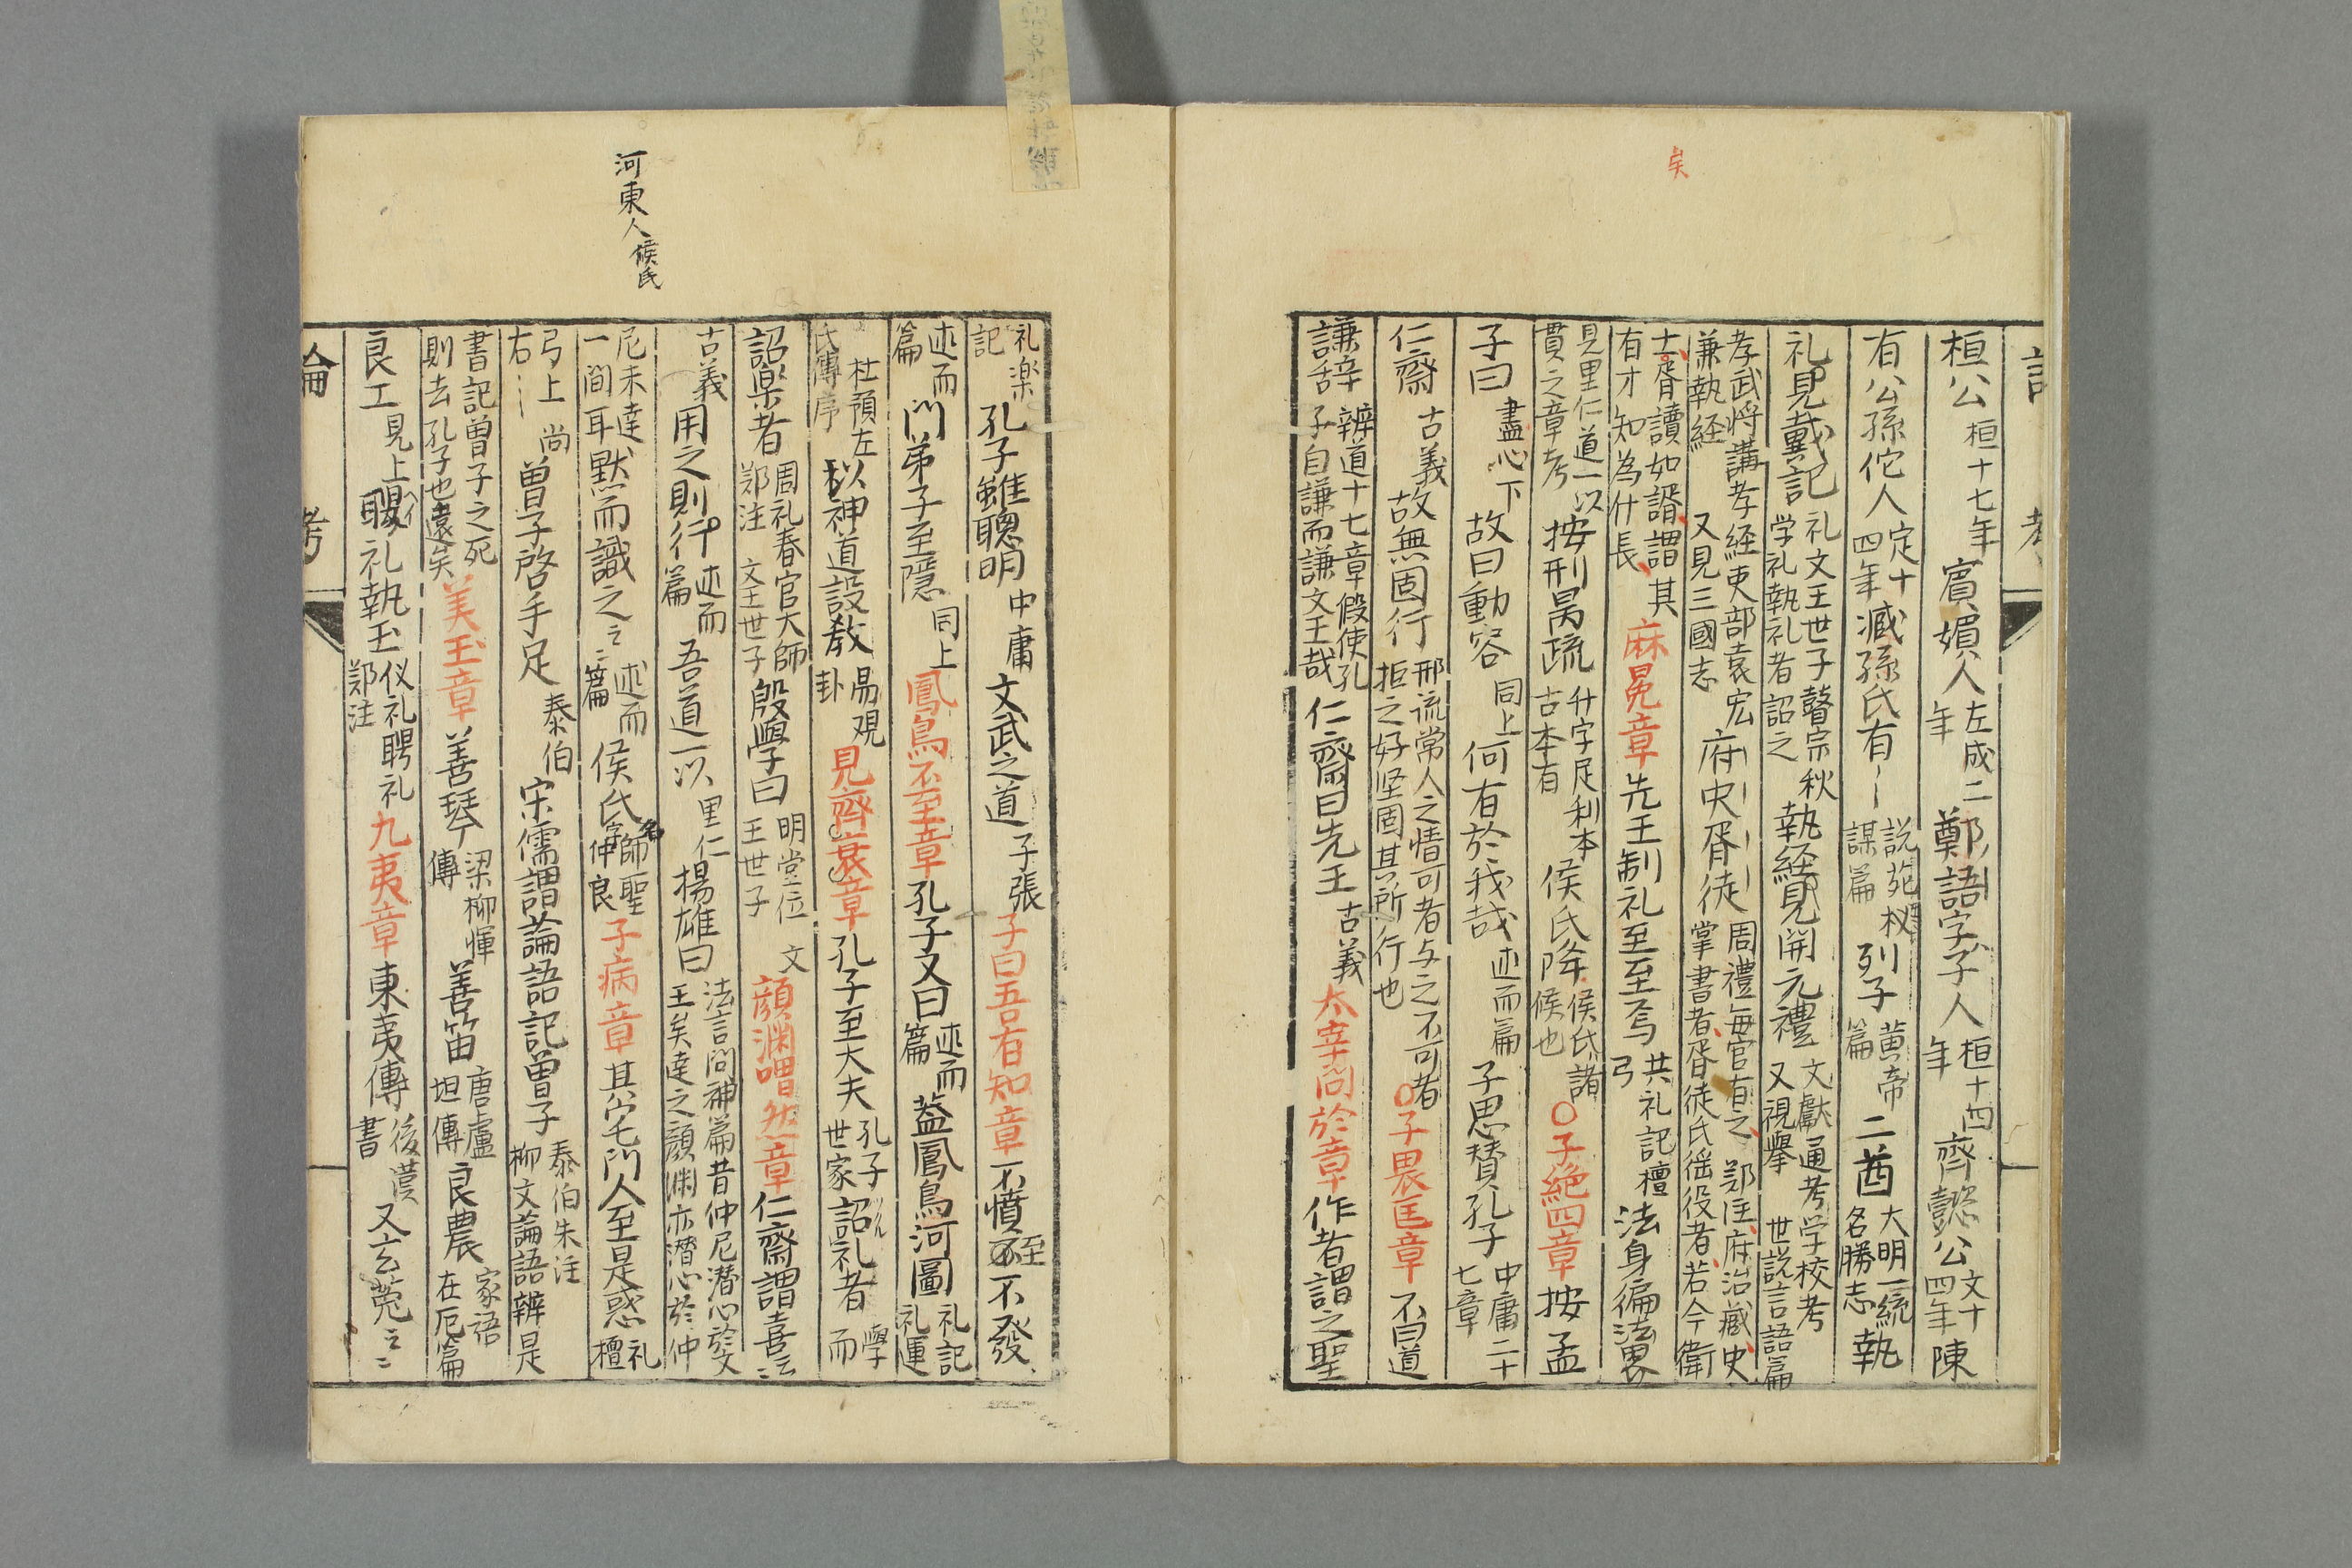 矣
桓公 桓十七年 賓媚人 左成二年 鄭語字子人 桓十四年 齊懿公 文十四年 陳
有公孫佗人 定十四年 臧孫氏有 説苑权謀篇 列子 黄帝篇 二酋 大明一統名勝志 執
礼見戴記 礼文王世子瞽宗秋学礼執礼者詔之 執経見開元禮 文獻通考学校考又視學 世説言語篇
孝武将講孝経吏部袁宏兼執経 又見三國志 府史胥徒 周禮毎官有之、郑注、府治藏、史掌書者、胥徒民徭役者、若今衛
士、胥讀如諝、謂其有才知為什長、 麻冕章 先王制礼至至焉 共礼記檀弓 法身徧法界
見里仁道一以貫之章考 按刑昺疏 升字足利本古本有 侯氏降 侯氏諸候也 ○子絶四章 按孟
子曰 盡心下 故曰動容 同上 何有於我哉 述而篇 子思賛孔子 中庸二十七章
仁齋 古義 故無固行 邢疏常人之情可者与之不可者拒之好坚固其所行也 ○子畏匡章 不曰道
謙辞 辨道十七章假使孔子自謙而謙文王哉 仁齋曰先王 古義 太宰問於章 作者謂之聖
礼楽記 孔子雖聰明 中庸 文武之道 子張 子曰吾有知章 不憤至不發、
述而篇 門弟子至隱 同上 鳳鳥不至章 孔子又曰 述而篇 葢鳳鳥河圖 礼記礼運
杜預左氏傳序 以神道設教 易观卦 見齊衰章 孔子至大夫 孔子世家 詔礼者 學而
詔楽者 周礼春官大師郑注 文王世子 殷學曰 明堂位 文王世子 顔淵喟然章 仁齋謂喜云云
古義 用之則行 述而篇 吾道一以 里仁 揚雄曰 法言問神篇昔仲尼潜心於文王矣達之顔淵亦潜心於仲
尼未達一間耳 默而識之云云 述而篇 侯氏 名師聖字仲良 子病章 其宅門人至是惑 礼檀
弓上 右 尚 曽子啓手足 泰伯 宋儒謂論語記曽子 泰伯朱注 柳文論語辨是
書記曽子之死則去孔子也遠矣 美玉章 善琴 梁柳惲傳 善笛 唐盧坦傳 良農 家語在厄篇
良工 見上 聘礼執玉 仪礼聘礼郑注 九夷章 東夷傳 後漢書 又玄菟云云
河東人侯氏
論 考